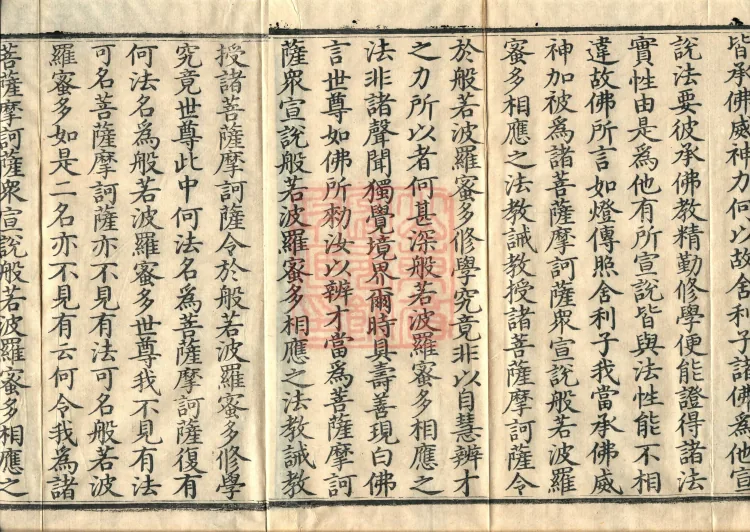 皆承佛威神力何以故舍利子諸佛爲他宣
說法要彼承佛教精勤修學便能證得諸法
實性由是爲他有所宣說皆與法性能不相
違故佛所言如燈傳照舍利子我當承佛威
神加被爲諸菩薩摩訶薩衆宣說般若波羅
蜜多相應之法教誡教授諸菩薩摩訶薩令
於般若波羅蜜多修學究竟非以自慧辨才
之力所以者何甚深般若波羅蜜多相應之
法非諸聲聞獨覺境界爾時具壽善現白佛
言世尊如佛所勑汝以辨才當爲菩薩摩訶
薩衆宣說般若波羅蜜多相應之法教誡教
授諸菩薩摩訶薩令於般若波羅蜜多修學
究竟世尊此中何法名爲菩薩摩訶薩復有
何法名爲般若波羅蜜多世尊我不見有法
可名菩薩摩訶薩亦不見有法可名般若波
羅蜜多如是二名亦不見有云何令我爲諸
菩薩摩訶薩衆宣說般若波羅蜜多相應之